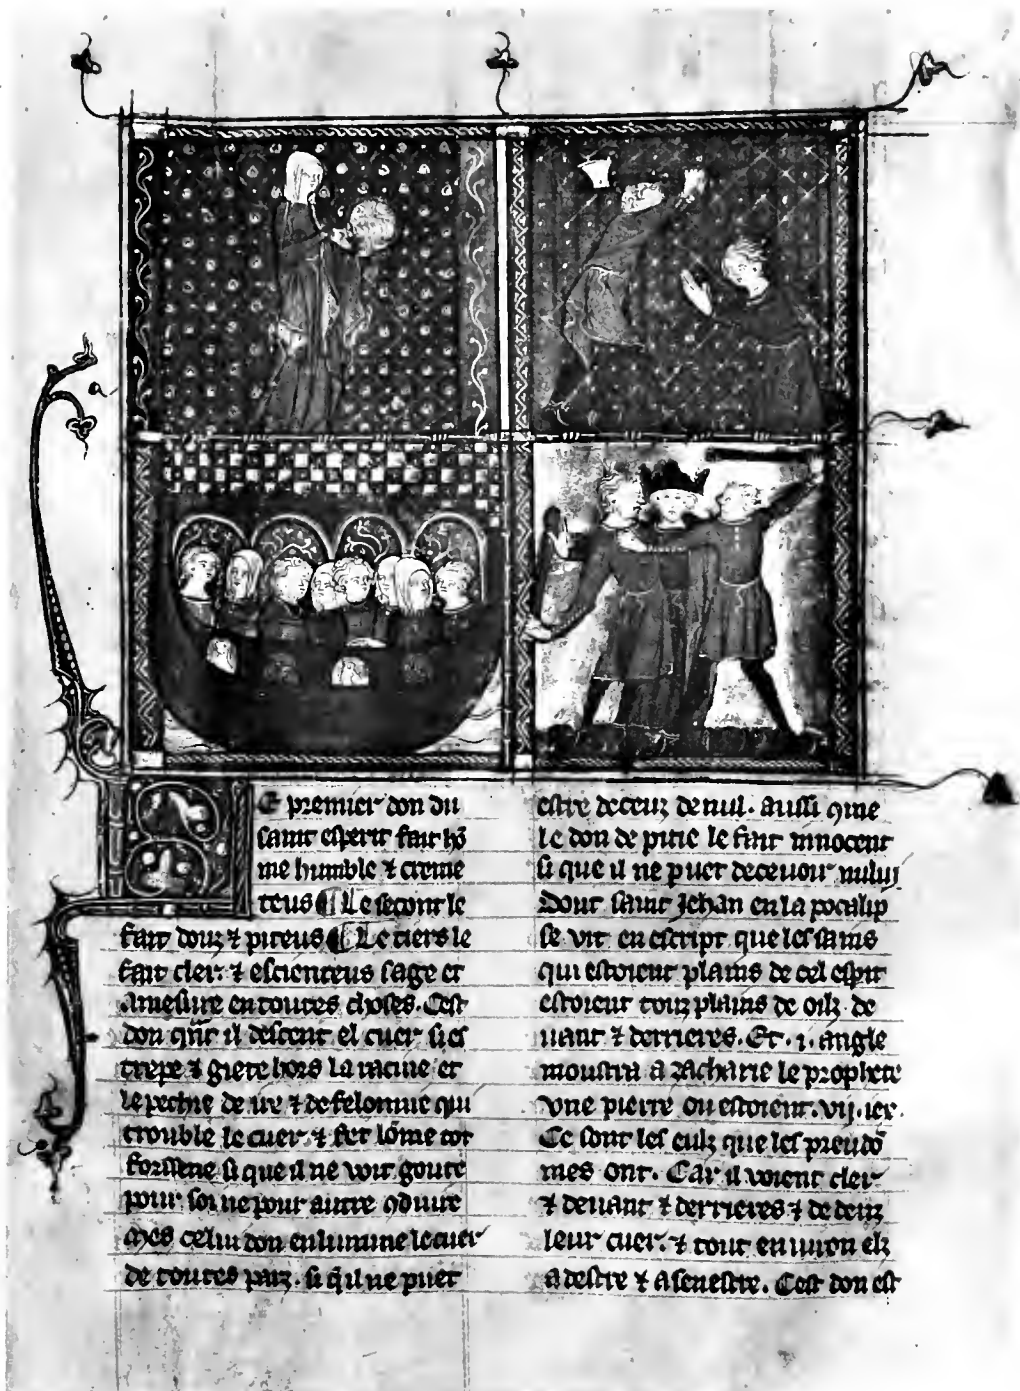 E premier don du
saint esperit fait hō
me humble ⁊ creme
teus ¶ Le secont le
fait douz ⁊ piteus ¶ Le tiers le
fait cler ⁊ escienteus sage et
amesure en toutes choses. Cest
don qn̄t il descent el cuer si es
trepe ⁊ giete hors la racine et
le pechie de ire ⁊ de felonnie qui
trouble le cuer ⁊ fet lōme tot
forssene si que il ne voit goute
pour soi ne pour autre
mes celui don enlumine le cuer
de toutes parz. si q̄ il ne puet
estre deceuz de nul. aussi q̄me
le don de pitie le fait innocent
si que il ne puet decevoir nului
Dont saint Jehan en la pocalip
se vit en escript que les sains
qui estoient plains de cel espit
estoient touz plains de oilz de
uant ⁊ derrieres. Et .i. angle
moustra a zacharie le prophete
vne pierre ou estoient .vij. iex
Ce sont les eulz que les preudō
mes ont. Car il voient cler
⁊ deuant ⁊ derrieres ⁊ dedenz
leur cuer. ⁊ tout enuiron elz
a destre ⁊ a senestre. Cest don est